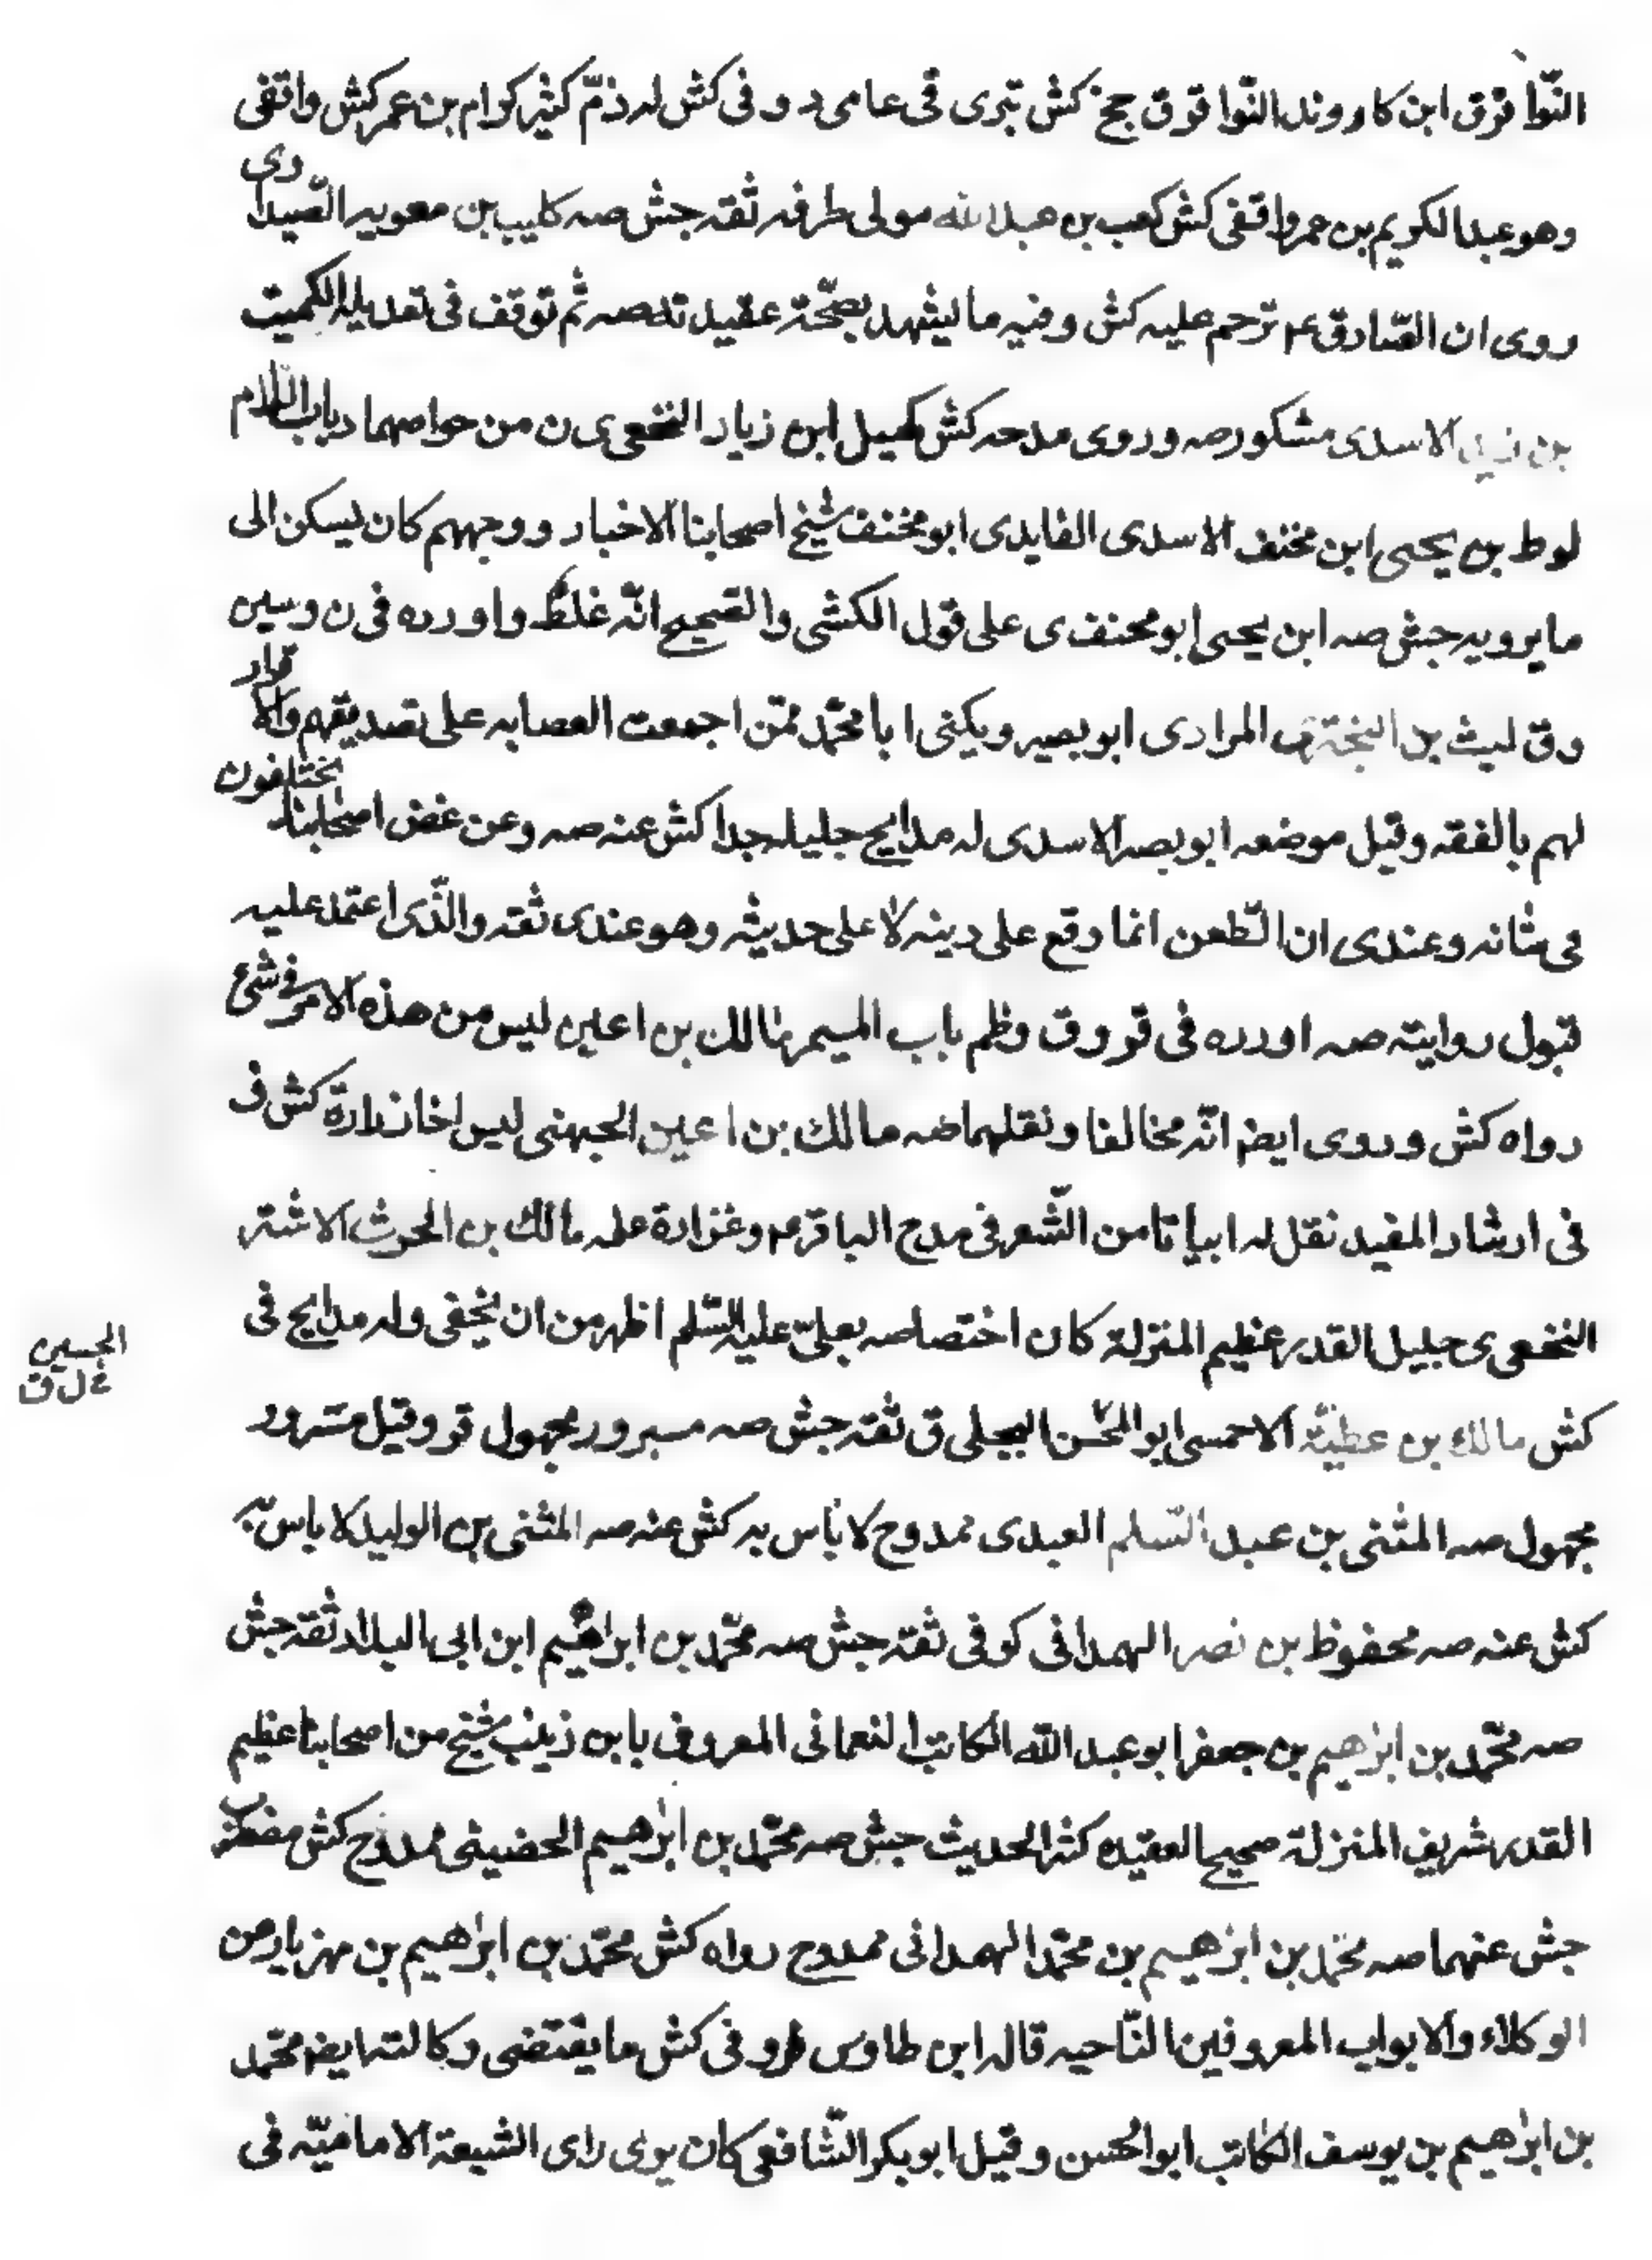 النّوا قرق ابن كاروند النّوا قوق جخ كش تبرى قى عامى د و فى كش له ذمّ كثير كرام بن عمر كش واقفى
وهو عبد الكريم بن عمر واقفى كش كعب بن عبد الله مولى طرفه ثقه جش صه كليب بن معويه الصّيداوى
روى ان الصّادق ع‍ ترحم عليه كش وفيه ما يشهد بصحّة عقيدته صه ثم توقف فى تعديله الكميت
بن زيد الاسدى مشكور صه وروى مدحه كش كميل ابن زياد النخعى ى ن من خواصهما د باب اللام
لوط بن يحيى ابن مخنف الاسدى الغايدى ابو مخنف شيخ اصحابنا الاخبار ووجههم كان يسكن الى
ما يرويه جش صه ابن يحيى ابو مخنف ى على قول الكشى والصّحيح انّه غلط واورده فى ن وسين
وق ليث بن البخترى المرادى ابو بصير ويكنى ابا محمّد ممّن اجمعت العصابه على تصديقهم والاقرار
لهم بالفقه وقيل موضعه ابو بصير الاسدى له مدايح جليله جدا كش عنه صه وعن غض اصحابنا مختلفون
فى شانه وعندى ان الطّعن انما وقع على دينه لا على حديثه وهو عندى ثقه والّذى اعتمد عليه
قبول روايته صه اورده فى قر وق وظم باب الميم مالك بن اعين ليس من هذه الامر فى شئ
رواه كش وروى ايض انّه مخالفا ونقلهما صه مالك بن اعين الجهنى ليس اخا زرارة كش فى
فى ارشاد المفيد نقل له ابياتا من الشّعر فى مدح الباقر ع‍ وغزارة علمه مالك بن الحرث الاشتر
النخعى ى جليل القدر عظيم المنزلة كان اختصاصه بعلىّ عليه السّلم اظهر من ان يخفى وله مدايح فى
كش مالك بن عطيّة الاحمسى ابو الحسن البجلى ق ثقه جش صه مسرور مجهول قر وقيل مسرور
مجهول صه المثنى بن عبد السّلم العبدى ممدوح لا باس به كش عنه صه المثنى بن الوليد لا باس به
كش عنه صه محفوظ بن نصر الهمدانى كوفى ثقه جش صه محمّد بن ابراهيم ابن ابى البلاد ثقه جش
صه محمّد بن ابرهيم بن جعفر ابو عبد الله الكاتب النعمانى المعروف بابن زينب شيخ من اصحابنا عظيم
القدر شريف المنزلة صحيح العقيده كثير الحديث جش صه محمّد بن ابرهيم الحضينى ممدوح كش
جش عنهما صه محمّد بن ابرهيم بن محمّد الهمدانى ممدوح رواه كش محمّد بن ابرهيم بن مهزيار من
الوكلاء والابواب المعروفين النّاحيه قاله ابن طاوس وفى كش ما يقتضى وكالته ايض محمّد
بن ابرهيم بن يوسف الكاتب ابو الحسن وقيل ابو بكر الشّافعى كان يرى راى الشيعة الاماميّه فى
الحسين
خ ل ق